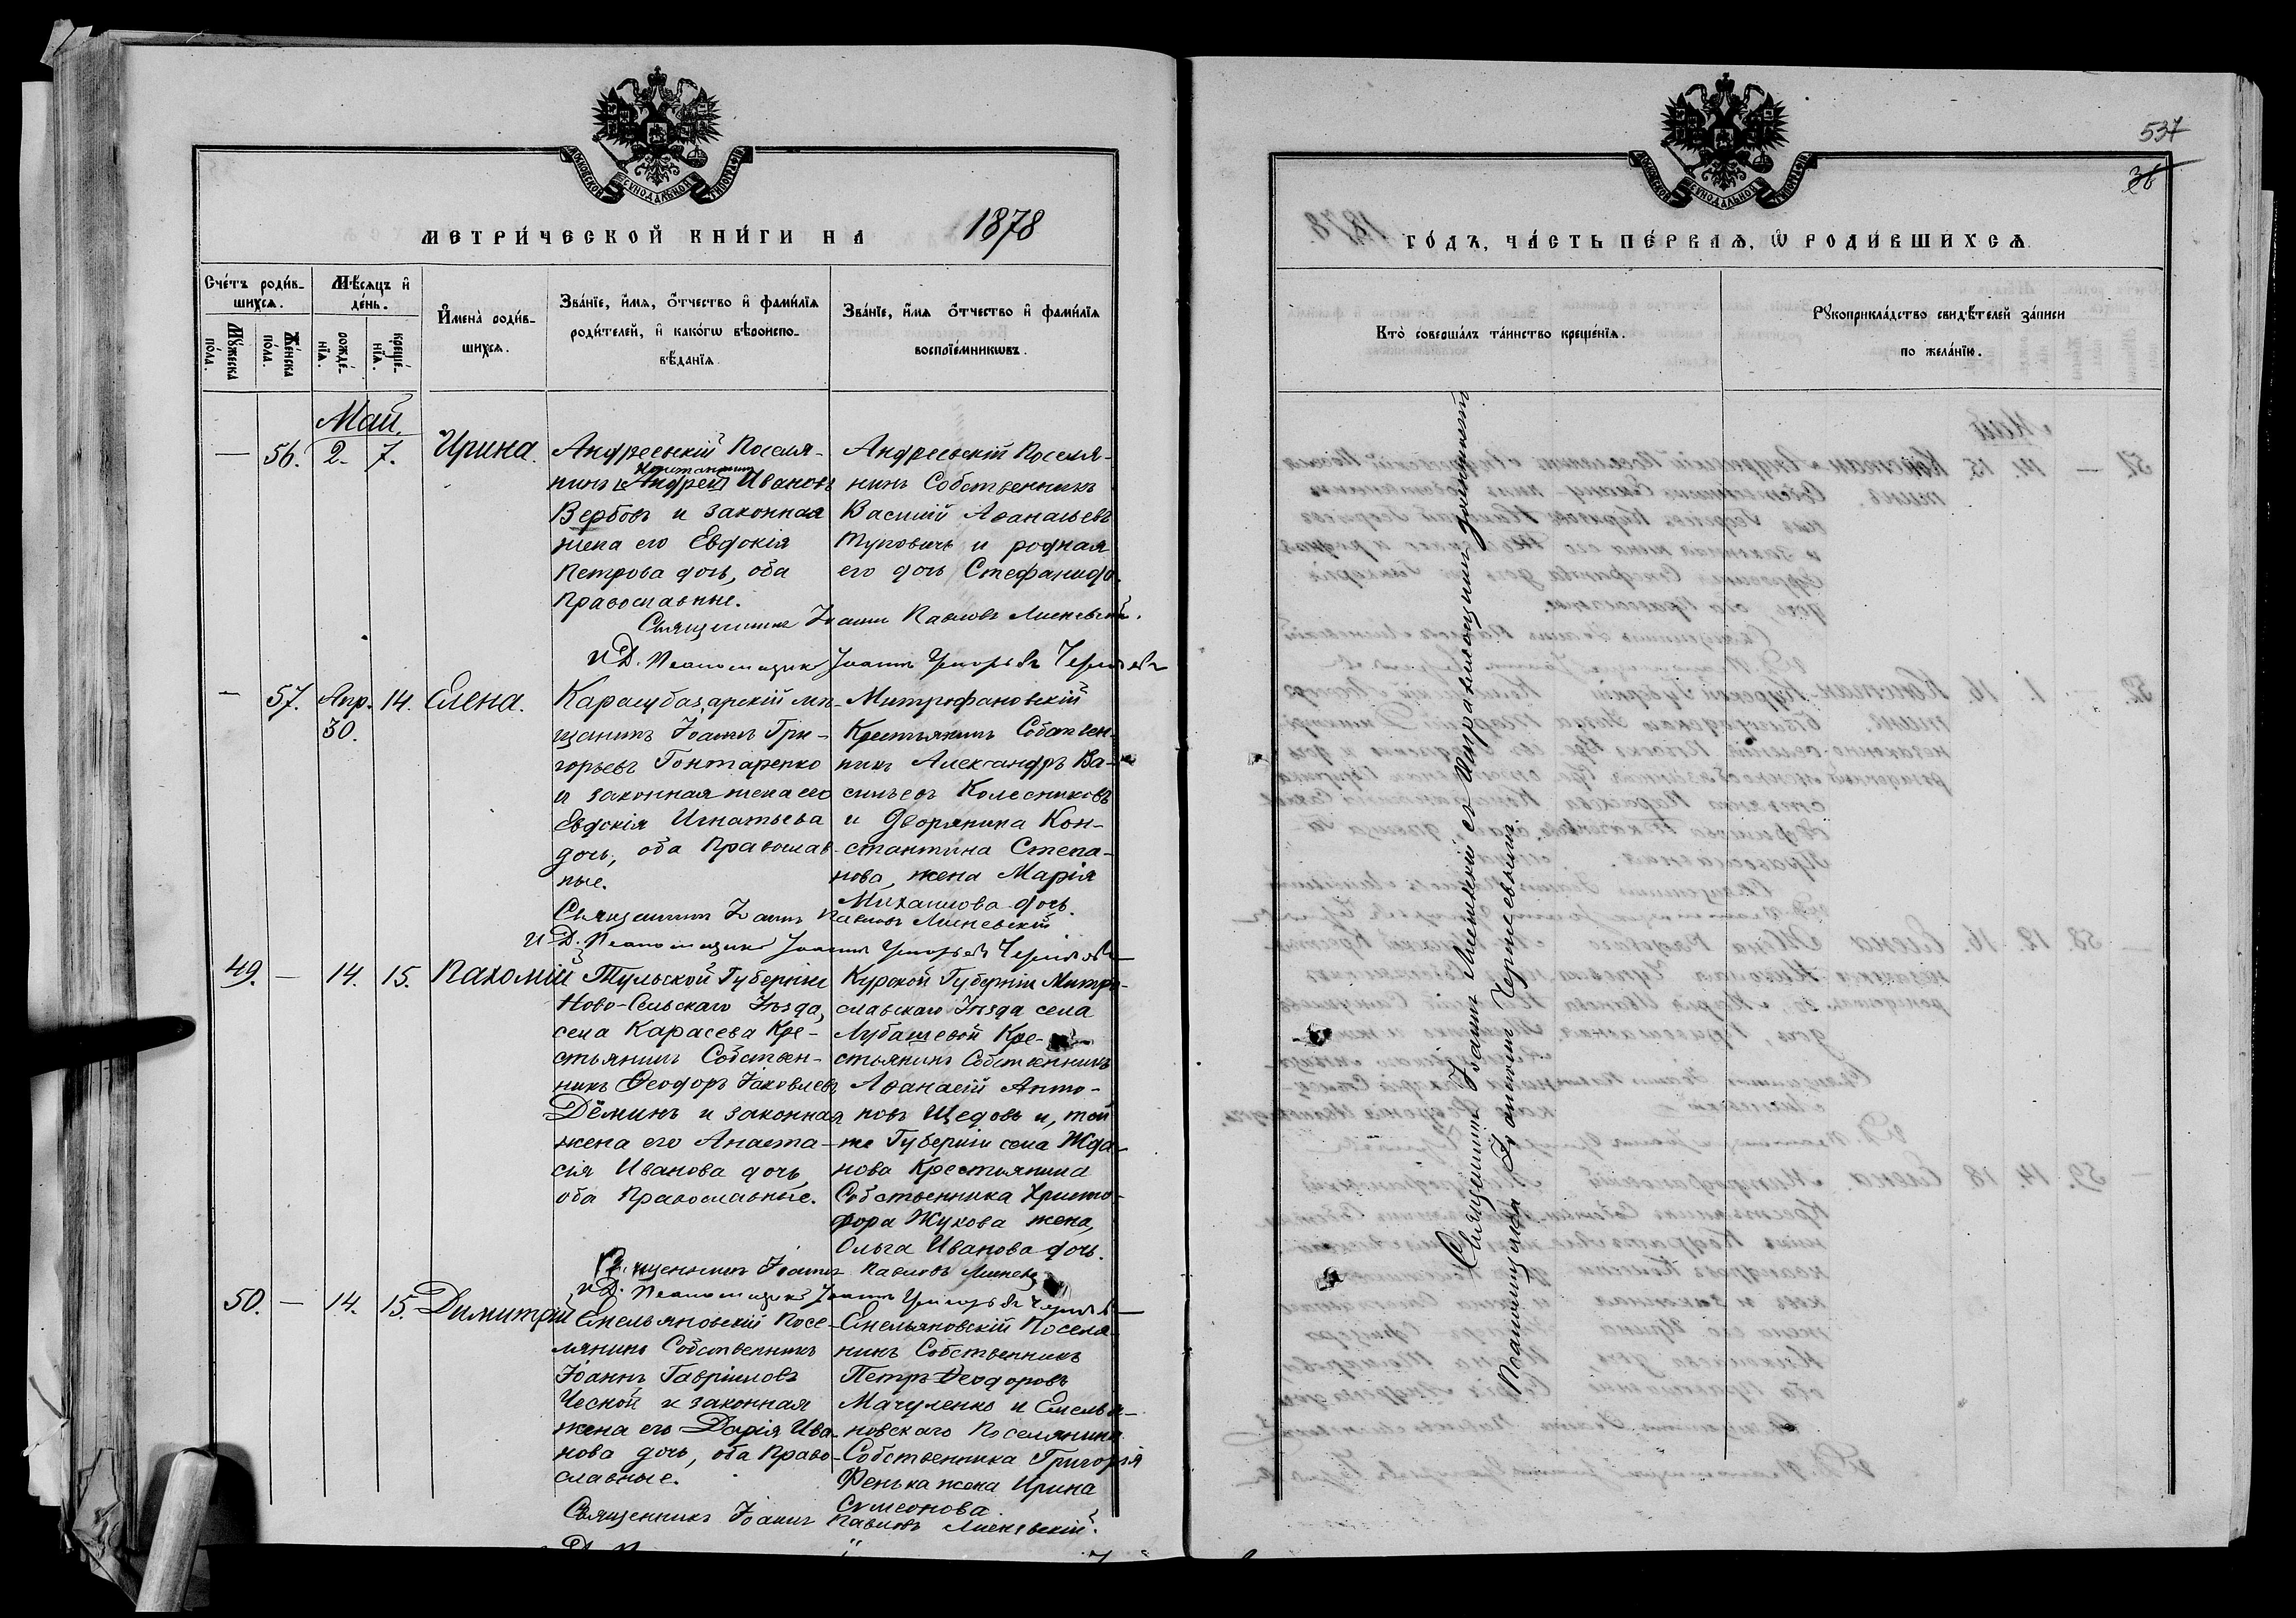 МОСКОВСКОЙ СѴНОДАЛЬНОЙ ТИПОГРАФІИ
МЕТРИ́ЧЕСКОЙ КНИ́ГИ НА 1878
Сче́тъ роди́в-
шихсѧ.
Мѣ́сѧцъ и҆
де́нь.
Мꙋ́жеска
по́ла.
Же́нска
по́ла.
рожде́-
нїѧ.
креще́-
нїѧ.
И҆мена̀ роди́в-
шихсѧ.
Зва́нїе, и҆́мѧ, ѻ҆́тчество и҆ фами́лїѧ
роди́телей, и҆ како́гѡ вѣроиспо-
вѣ́данїѧ
Зва́нїе, и҆́мѧ ѻ҆́тчество и҆ фами́лїѧ
воспрїе́мникѡвъ.
Май.
— 56. 2. 7. Ирина.
Андреевскій Поселя-
Константин
нинъ [Андрей] Ивановъ
Вербовъ и законная
жена его Евдокія
Петрова дочь, оба
Православные.
Андреевскій Поселя-
нинъ Собственникъ
Василій Аѳанасьевъ
и родная
его дочь Стефанида.
Священникъ Іоаннъ Павловъ
И Д. Псаломщика Іоаннъ
— 57. Апр. 14. Елена.
30.
Карасубазарскій мѣ-
щанинъ Іоаннъ Гри-
горьевъ Гонтаренко
и законная жена его
Евдокія Игнатьева
дочь, оба Православ-
ные.
Митрофановскій
Крестьянинъ Собствен-
никъ Александръ Ва-
сильевъ Колесниковъ
и Дворянина Кон-
стантина Степа-
нова, жена Марія
Михаилова дочь.
Священникъ Іоаннъ Павловъ
И Д. Псаломщика Іоаннъ
49. — 14. 15. Пахомій
Тульской Губерніи
Ново-Сельскаго Уѣзда,
села Карасева Кре-
стьянинъ Собствен-
никъ Ѳеодоръ Іаковлевъ
Дёминъ и законная
жена его Анаста-
сія Иванова дочь,
оба Православные.
Курской Губерніи Митро-
славскаго Уѣзда села
Лубашевой Кре-
стьянинъ Собственникъ
Аѳанасій Анто-
новъ Щедовъ и, той
же Губерніи села Жда-
нова Крестьянина
Собственника Христо-
фора Жукова жена,
Ольга Иванова дочь.
Священникъ Іоаннъ Павловъ
И Д. Псаломщика Іоаннъ
50. — 14. 15. Димитрій
Емельяновскій Посе-
лянинъ Собственникъ
Іоаннъ Гавріиловъ
Чесной и законная
жена его Дарія Ива-
нова дочь, оба Право-
славные.
Емельяновскій Поселя-
нинъ Собственникъ
Петръ Ѳеодоровъ
Мачуленко и Емелья-
новскаго Поселянина
Собственника Григорія
Фенька жена Ирина
Сумеонова.
Священникъ Іоаннъ Павловъ
537
38
МОСКОВСКОЙ СѴНОДАЛЬНОЙ ТИПОГРАФІИ
ГО́ДЪ, ЧА́СТЬ ПЕ́РВАѦ, Ѽ РОДИ́ВШИХСѦ
Кто̀ соверша́лъ та́инство креще́нїѧ.
Рꙋкоприкла́дство свидѣ́телей за́писи
по жела́нїю.
Священникъ Іоаннъ съ исправляющимъ должность
Псаломщика Іоанномъ